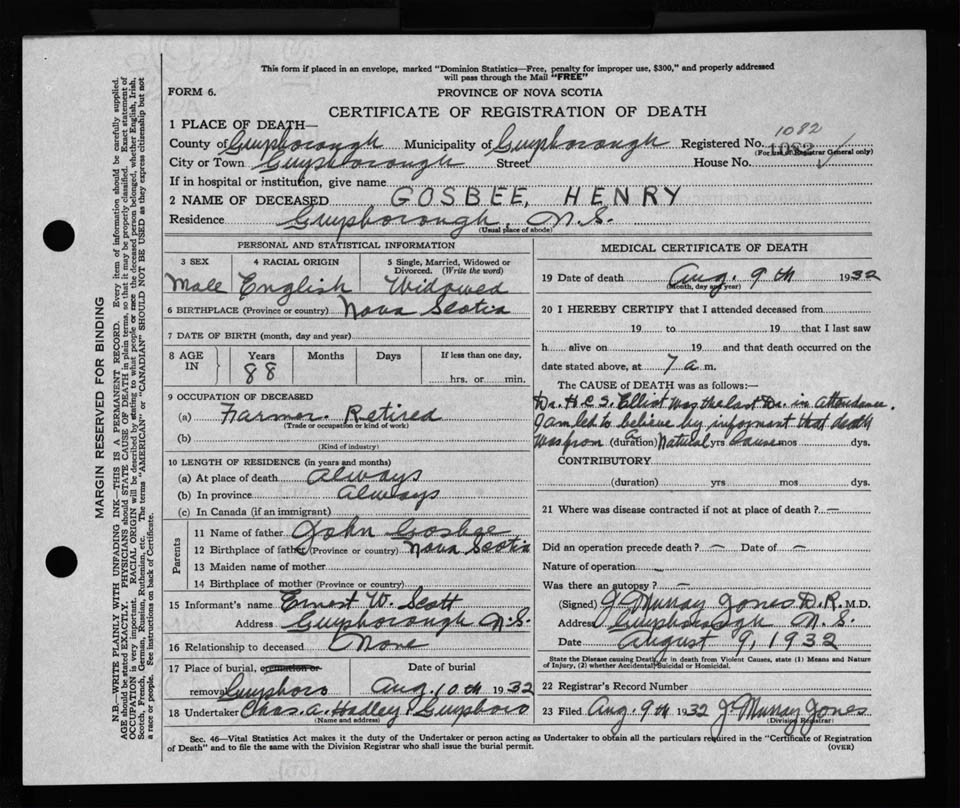 This form if placed in an envelope, marked "Dominion Statistics—Free, penalty for improper use, $300," and properly addressed
will pass through the Mail "FREE"
FORM 6.
PROVINCE OF NOVA SCOTIA
CERTIFICATE OF REGISTRATION OF DEATH
1 PLACE OF DEATH—
1082
County of Guysborough Municipality of Guysborough Registered No. 1083
(For use of Registrar General only)
City or Town Guysborough Street House No.
If in hospital or institution, give name
2 NAME OF DECEASED GOSBEE, HENRY
Residence Guysborough, N.S.
(Usual place of abode)
PERSONAL AND STATISTICAL INFORMATION
3 SEX 4 RACIAL ORIGIN 5 Single, Married, Widowed or
Divorced. (Write the word)
Male English Widowed
6 BIRTHPLACE (Province or country) Nova Scotia
7 DATE OF BIRTH (month, day and year)
8 AGE IN Years Months Days If less than one day,
88 hrs. or min.
9 OCCUPATION OF DECEASED
(a) Farmer. Retired
(Trade or occupation or kind of work)
(b)
(Kind of industry)
10 LENGTH OF RESIDENCE (in years and months)
(a) At place of death Always
(b) In province Always
(c) In Canada (if an immigrant)
Parents
11 Name of father John Gosbee
12 Birthplace of father (Province or country) Nova Scotia
13 Maiden name of mother
14 Birthplace of mother (Province or country)
15 Informant's name Ernest W. Scott
Address Guysborough N.S.
16 Relationship to deceased None
17 Place of burial, cremation or Date of burial
removal Guysboro Aug. 10th 1932
18 Undertaker Chas. A. Hadley Guysboro
(Name and address)
MEDICAL CERTIFICATE OF DEATH
19 Date of death Aug. 9th 1932
(Month, day and year)
20 I HEREBY CERTIFY that I attended deceased from
19 to 19 that I last saw
h alive on 19 and that death occurred on the
date stated above, at 7 a m.
The CAUSE OF DEATH was as follows:
Dr. H.C.S. Elliot was the last Dr. in attendance.
I am led to believe by informant that death
was from (duration) Natural yrs cause mos dys.
CONTRIBUTORY
(duration) yrs mos dys.
21 Where was disease contracted if not at place of death? —
Did an operation precede death? — Date of —
Nature of operation —
Was there an autopsy? —
(Signed) J Murray Jones D.R. M.D.
Address Guysborough N.S.
Date August 9, 1932
State the Disease causing Death, or in death from Violent Causes, state (1) Means and Nature
of Injury, (2) whether Accidental, Suicidal or Homicidal.
22 Registrar's Record Number
23 Filed Aug. 9th 1932 J Murray Jones
(Division Registrar)
Sec. 46—Vital Statistics Act makes it the duty of the Undertaker or person acting as Undertaker to obtain all the particulars required in the "Certificate of Registration
of Death" and to file the same with the Division Registrar who shall issue the burial permit.
(OVER)
MARGIN RESERVED FOR BINDING
N.B.—WRITE PLAINLY WITH UNFADING INK—THIS IS A PERMANENT RECORD. Every item of information should be carefully supplied.
AGE should be stated EXACTLY. PHYSICIANS should STATE CAUSE OF DEATH in plain terms, so that it may be properly classified. Exact statement of
OCCUPATION is very important. RACIAL ORIGIN will be described by stating to what people or race the deceased person belonged, whether English, Irish,
Scotch, French, German, Russian, Ruthenian, etc. The terms "AMERICAN" or "CANADIAN" SHOULD NOT BE USED as they express citizenship but not
a race or people. See instructions on back of Certificate.